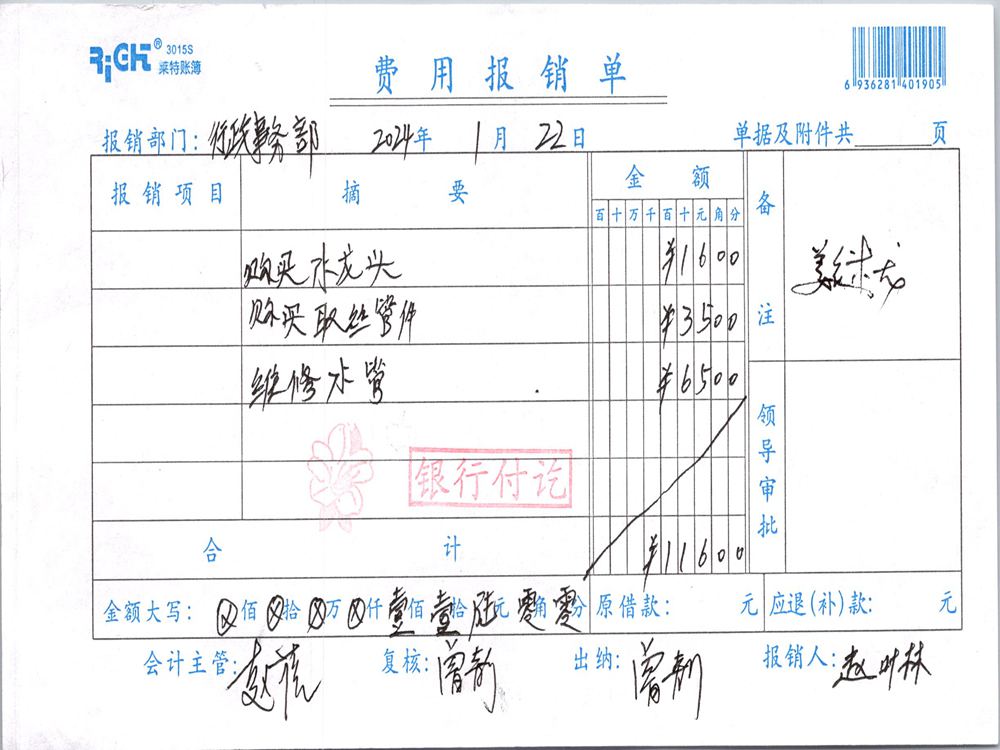 RiCH® 3015S
莱特账簿
费用报销单
6 936281 401905
报销部门：行政事务部 2024年 1月 22日 单据及附件共 页
报销项目 摘要 金额 备注
百 十 万 千 百 十 元 角 分
购买水龙头 ¥1600
购买取丝管件 ¥3500
维修水管 ¥6500
领导审批
银行付讫
合计 ¥11600
金额大写：ⓧ佰ⓧ拾ⓧ万ⓧ仟壹佰壹拾陆元零角零分 原借款： 元 应退(补)款： 元
会计主管： 复核： 出纳： 报销人：赵叶林